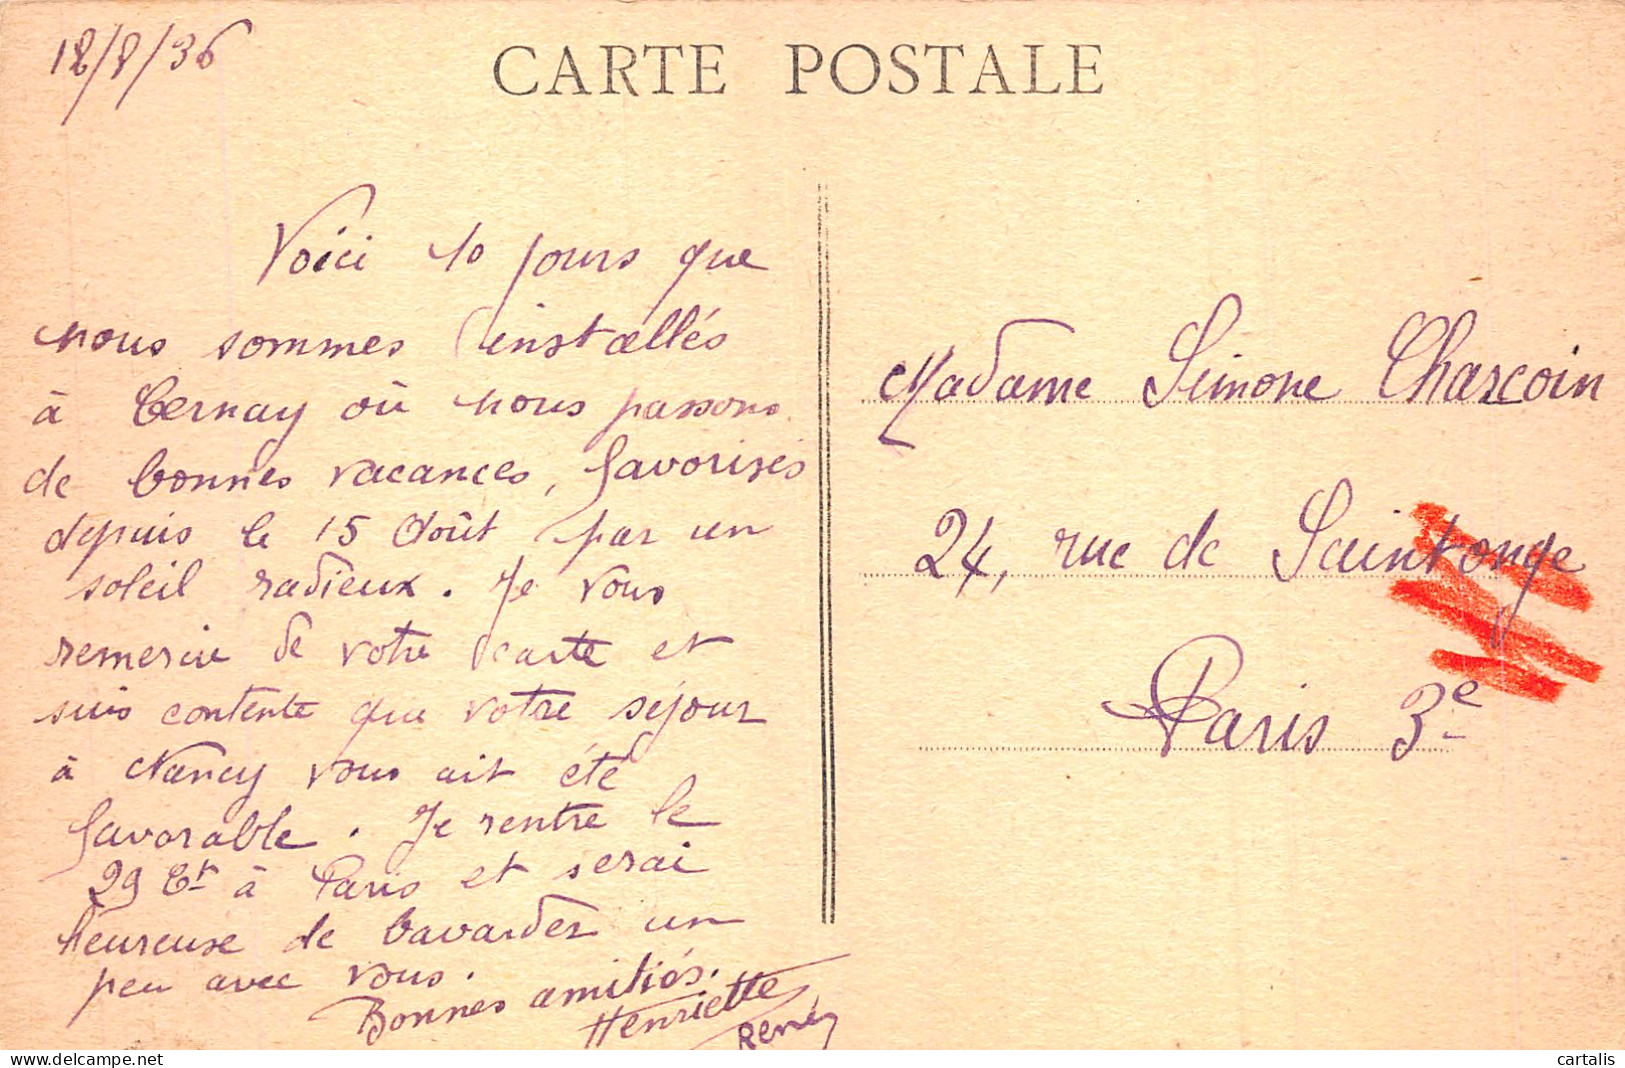 18/8/36
CARTE POSTALE
Voici 10 jours que
nous sommes installés
à Cernay où nous passons
de bonnes vacances, favorisés
depuis le 15 Août par un
soleil radieux. Je vous
remercie de votre carte et
suis contente que votre séjour
à Nancy vous ait été
favorable. Je rentre le
29 ct à Paris et serai
heureuse de bavarder un
peu avec vous.
Bonnes amitiés.
Henriette
René
Madame Simone Charcoin
24, rue de Saintonge
Paris 3e
cartalis
www.delcampe.net